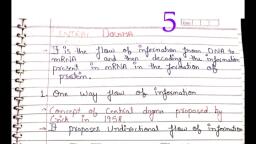 5
CENTRAL DOGMA
→ It is the flow of information from DNA to
mRNA and then decoding the information
present in mRNA in the formation of
protein.
1. One way flow of information
→ Concept of Central dogma proposed by
Crick in 1958
→ It proposes Unidirectional flow of information